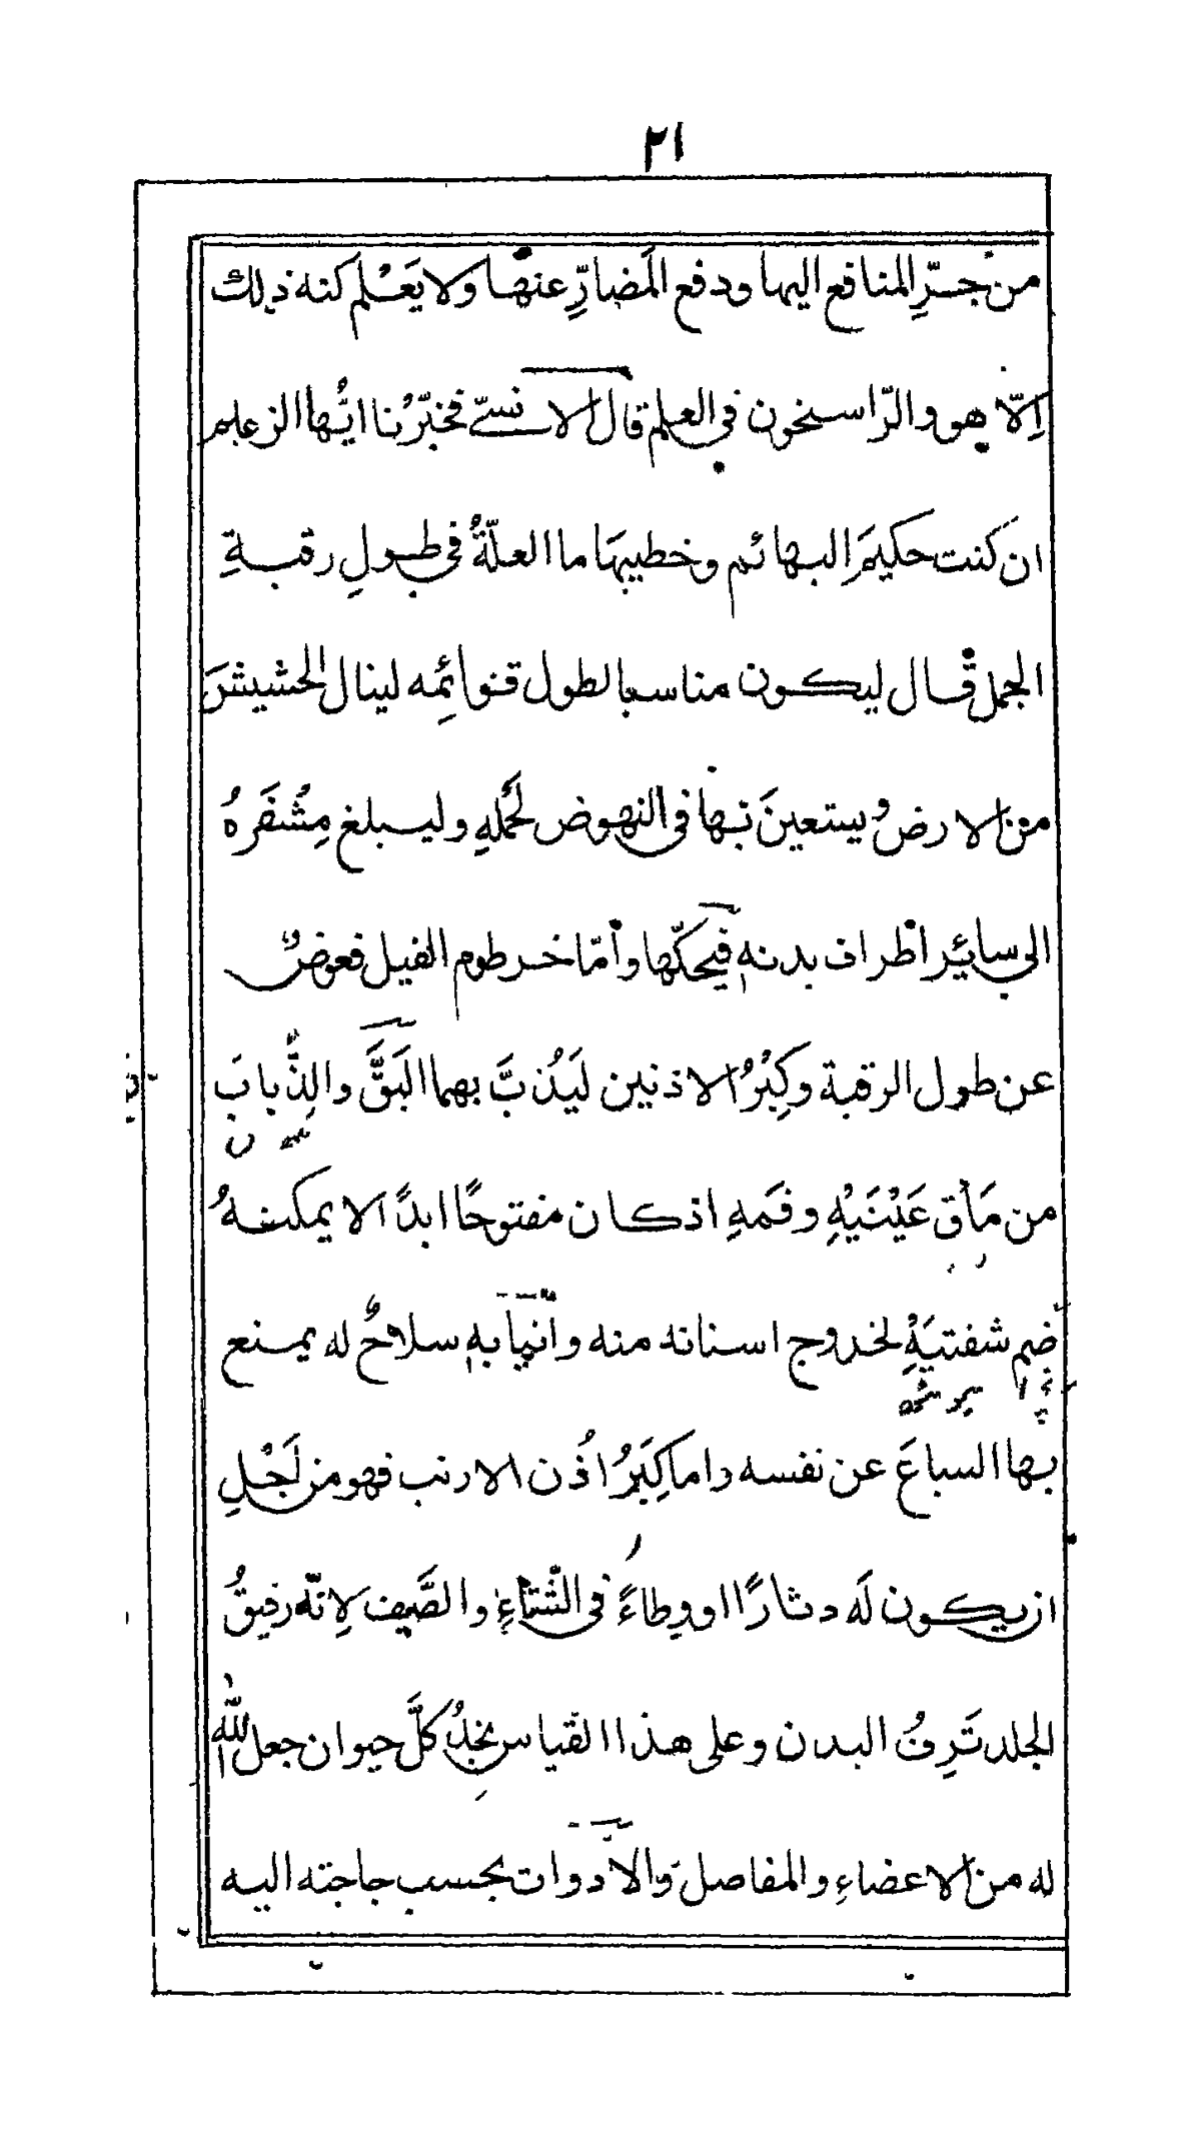 ٢١
من جرِّ المنافع اليها ودفع المَضارِّ عنها ولا يَعْلم كنه ذلك
اِلّا هو والرّاسخون في العلم قال الانسيّ فخبّرْنا ايُّها الزعيم
ان كنت حكيمَ البهائم وخطيبهَا ما العلّةُ في طولِ رقبةِ
الجمل قال ليكون مناسبا لطول قوائِمه لينال الحشيشَ
من الارض ويستعينَ بها في النهوض لحَملهِ وليبلغ مِشْفَرهُ
الى سائِر اطراف بدنهٖ فيحكّها وأمّا خرطوم الفيل فعوضٌ
عن طول الرقبة وكِبْرُ الاذنين ليَذُبَّ بهما البَقَّ والذُّبابَ
من مَأق عَيْنَيْهِ وفَمَهِ اذ كان مفتوحًا ابدًا لا يمكنهُ
ضم شفتيَهْ لخروج اسنانه منه وانّيابهٖ سلاحٌ له يمنع
بها السباعَ عن نفسه واما كِبَرُ اُذُن الارنب فهو من اَجْلِ
ان يكون لَه دثارًا او وِطاءً في الشّتاءِ والصَّيف لِانّه رقيقُ
الجلد تَرِفُ البدن وعلى هذا القياس نجِدُ كلَّ حيوان جعل الله
له من الاعضاءِ والمفاصل وَالادوات بحسب حاجته اليه